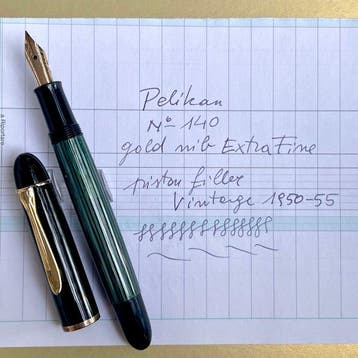 Pelikan
No 140
gold nib ExtraFine
piston filler
Vintage 1950-55